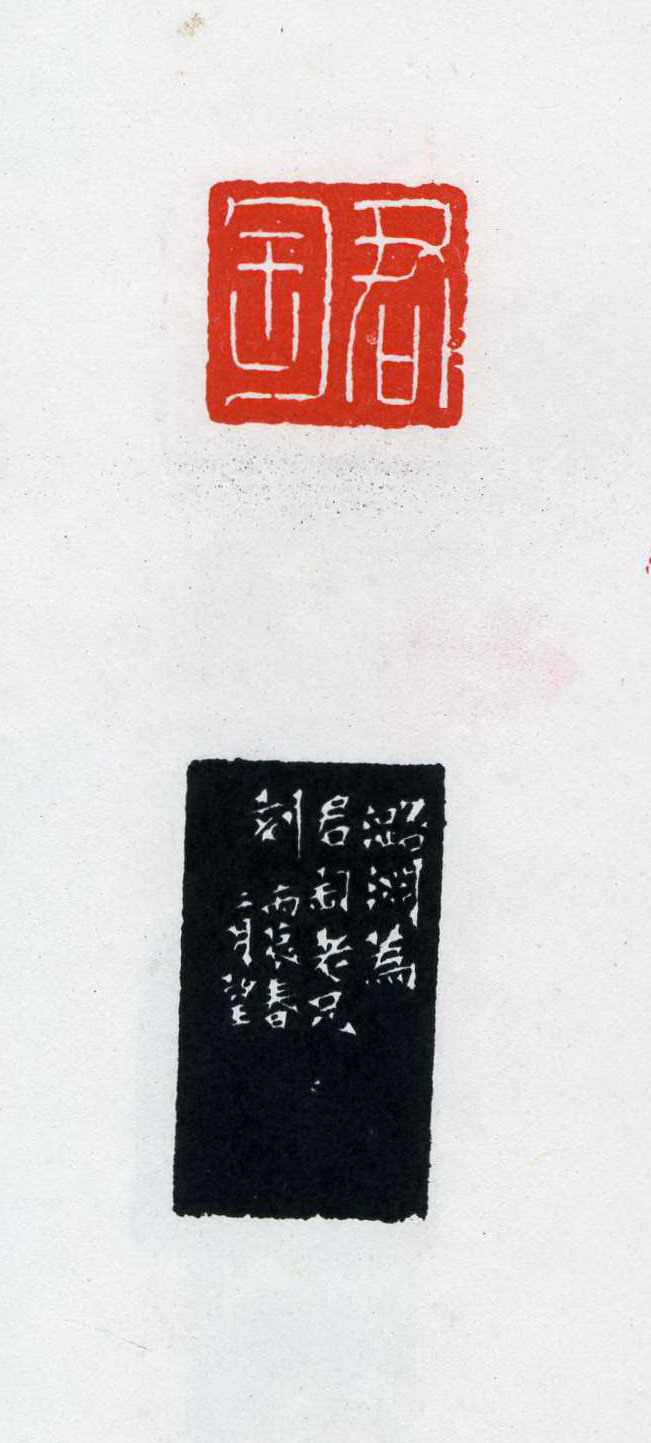 君匋
潞淵為
君匋老兄
刻
丙春
二月望